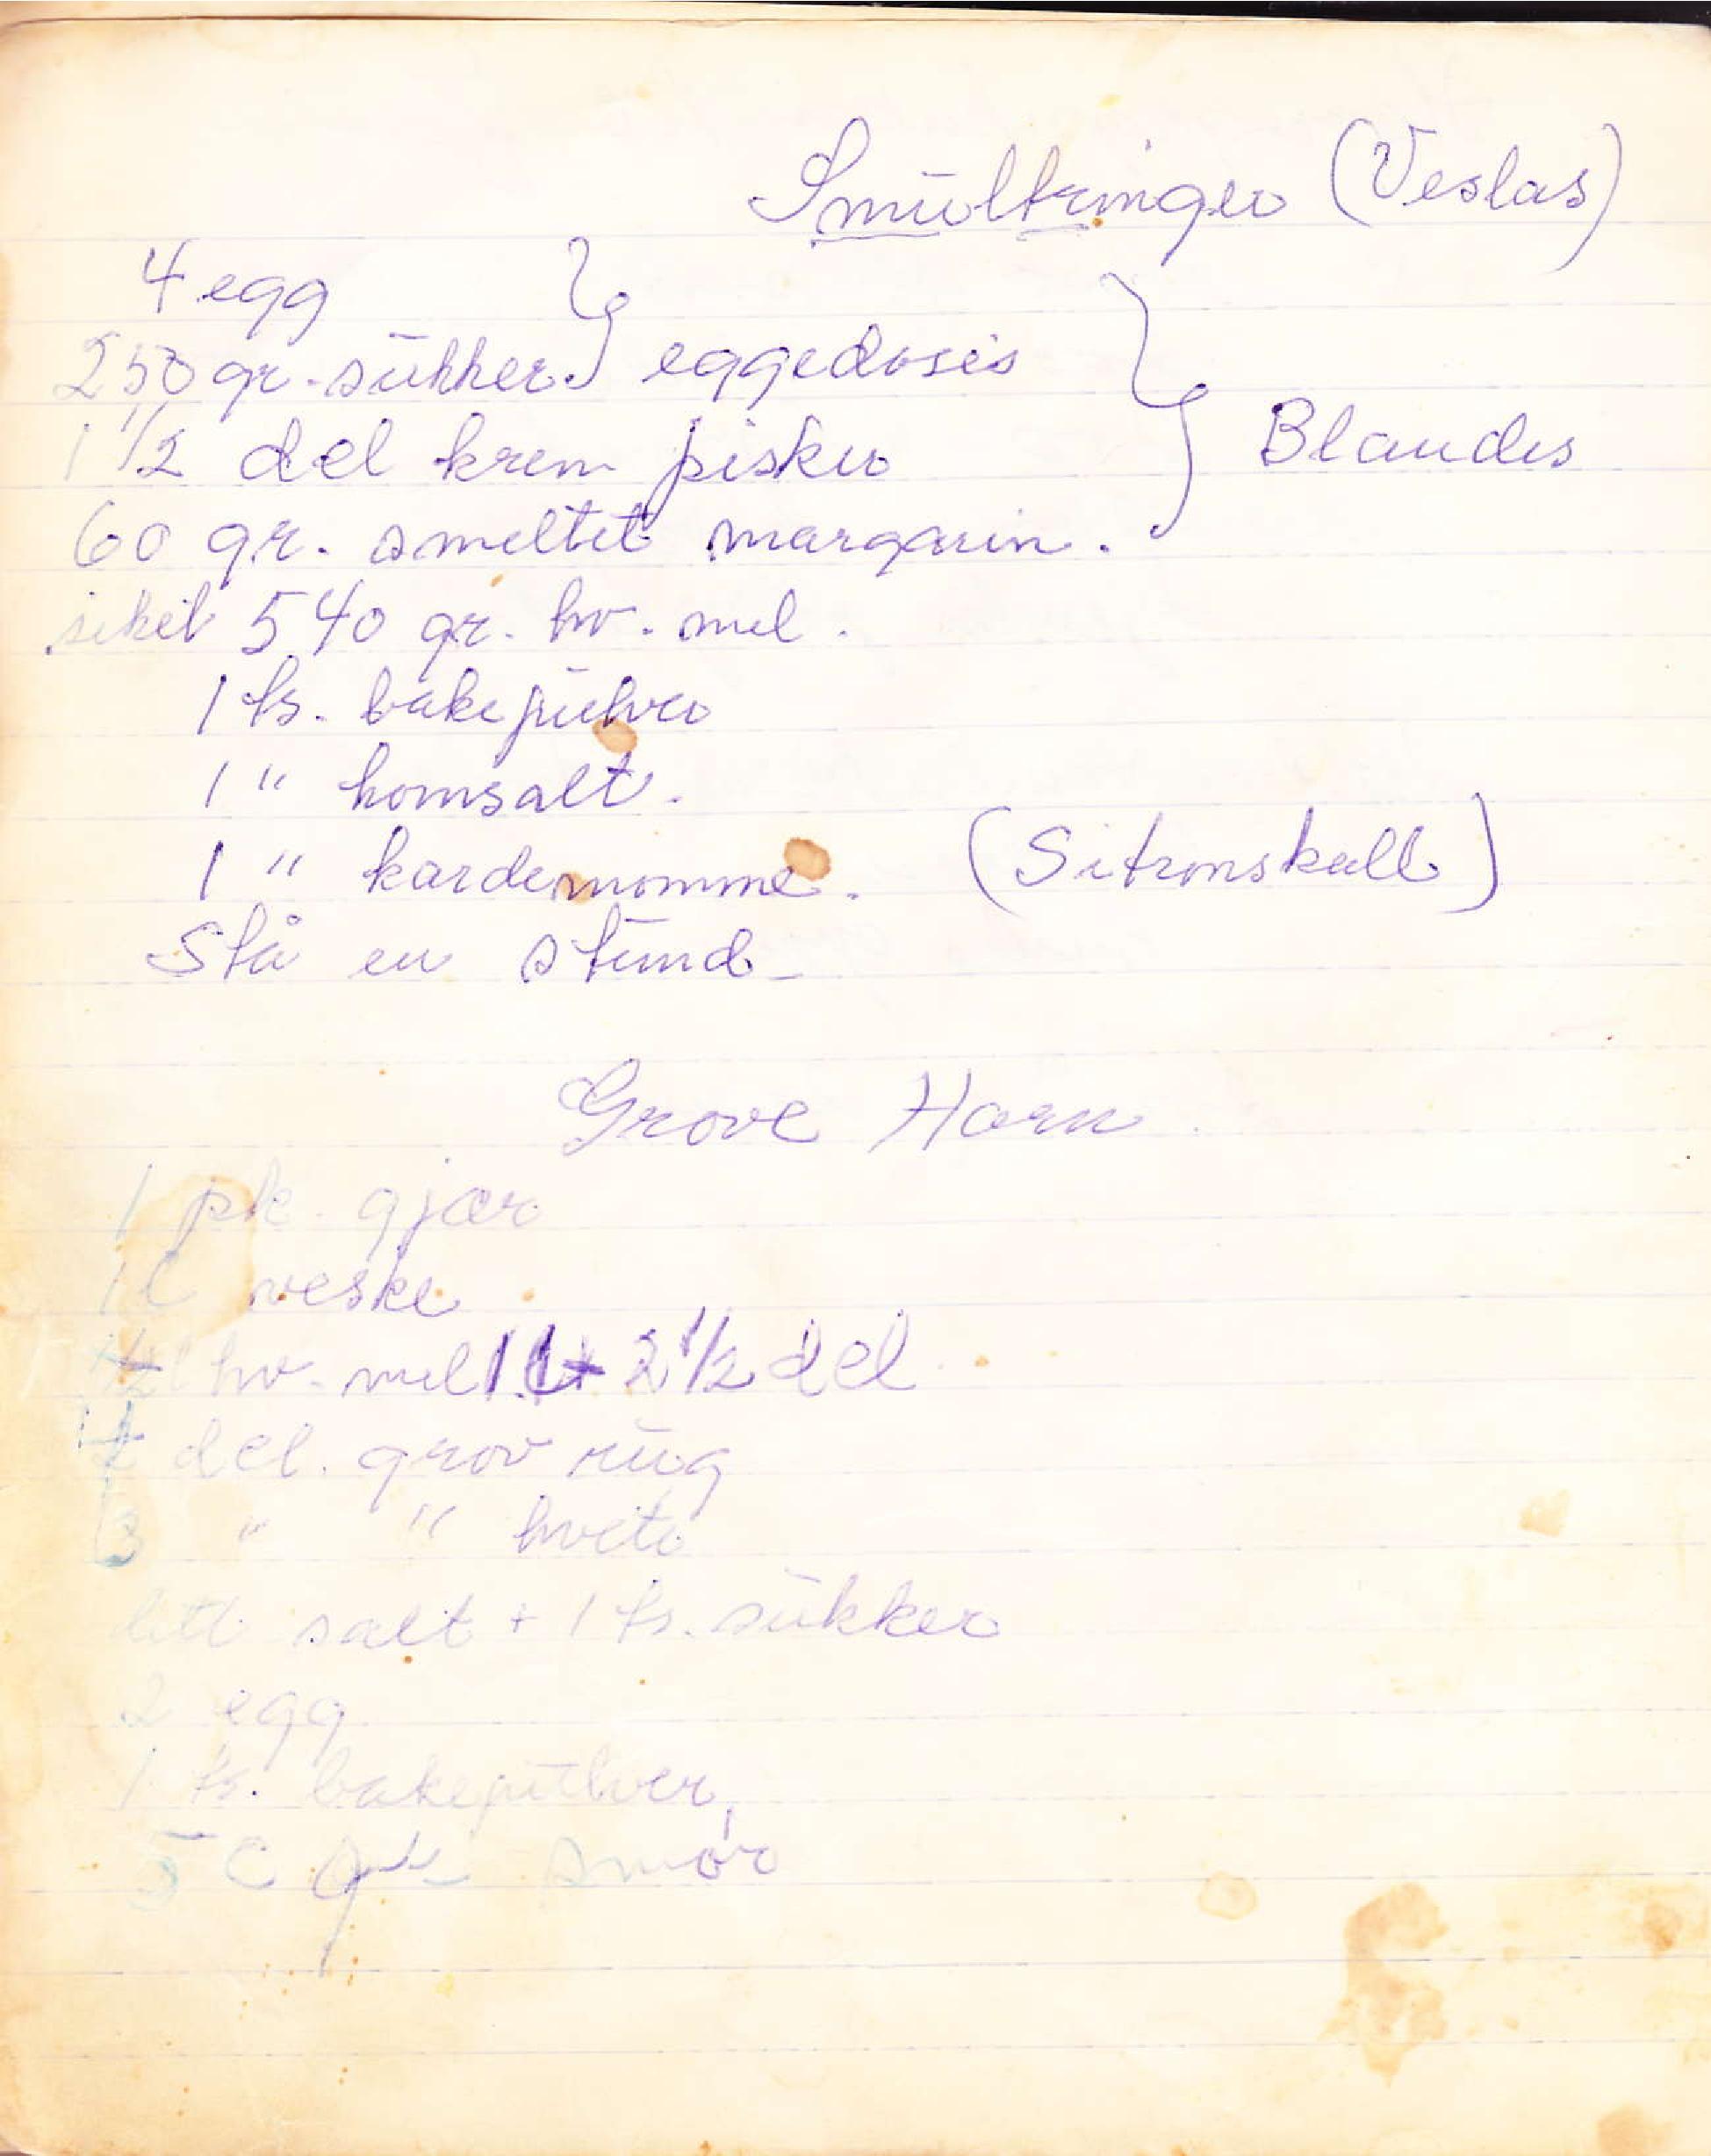 Smultringer (Veslas)
4 egg
250 gr. sukker } eggedosis
1 1/2 del krem pisker } Blandes
60 gr. smeltet margarin.
siktet 540 gr. hv. mel.
1 ts. bakepulver
1 " hornsalt.
1 " kardemomme. (Sitronskall)
Stå en stund
Grove Horn
1 pk. gjær
1 l veske
hv. mel 1 l + 2 1/2 del
del. grov rug
3 " " hvete
litt salt + 1 ts. sukker
2 egg
1 ts. bakepulver
smør